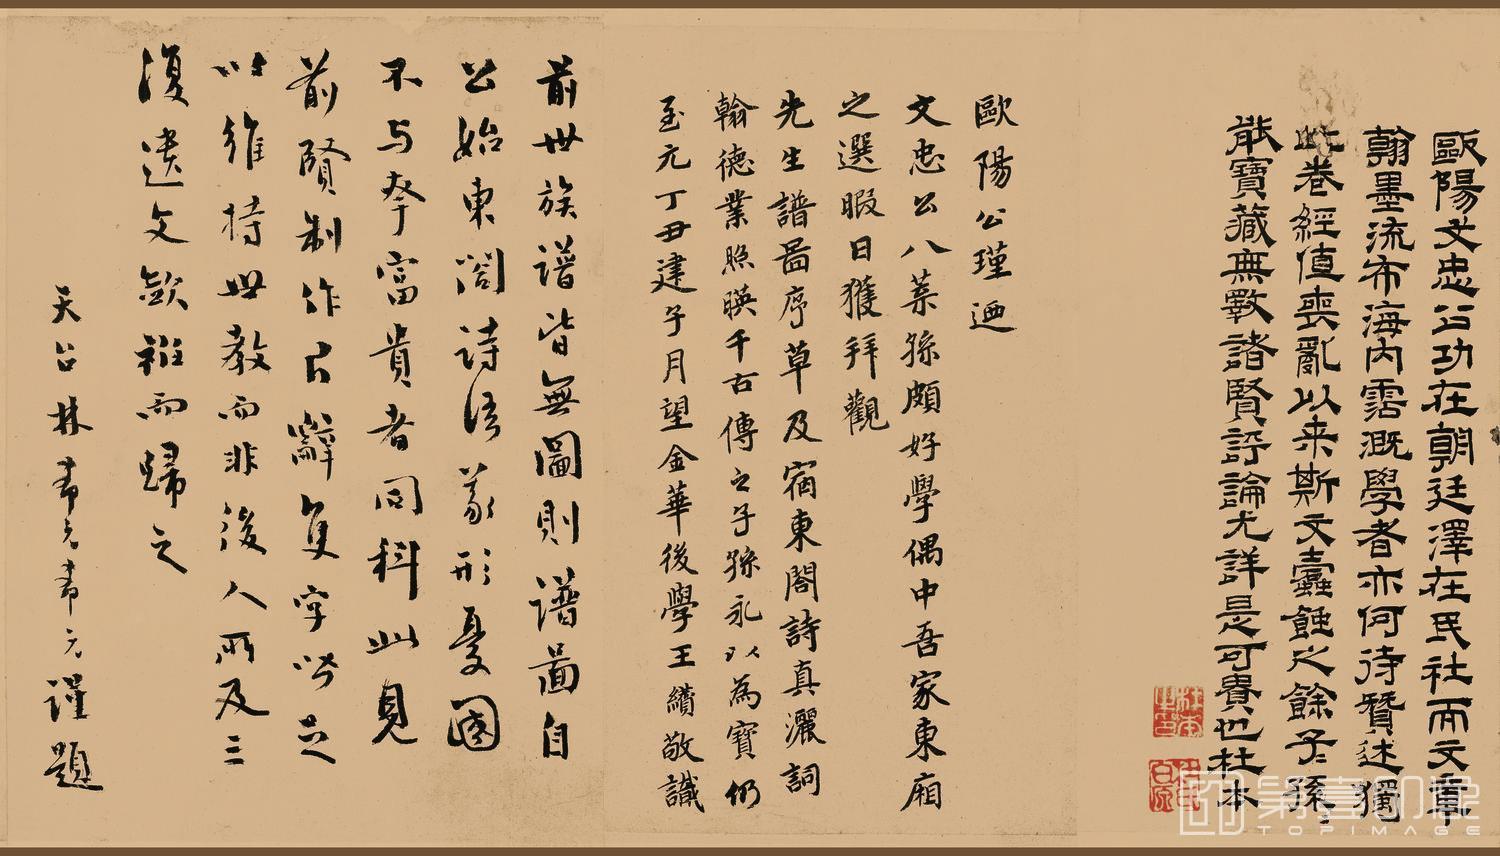 歐陽文忠公功在朝廷澤在民社而文章
翰墨流布海內霑溉學者亦何待贊述獨
此卷經值喪亂以来斯文蠹蝕之餘子孫
能寶藏無斁諸賢評論尤詳是可貴也杜本
歐陽公瑾迺
文忠公八葉孫頗好學偶中吾家東廂
之選暇日獲拜觀
先生譜圖序草及宿東閣詩真灑詞
翰德業照暎千古傳之子孫永以為寶仍
至元丁丑建子月望金華後學王纘敬識
前世族譜皆無圖則譜圖自
公始東閣詩語篆形憂國
不与奪富貴者同科此見
前賢制作古辭隻字皆足
以維持世教而非後人所及三
復遺文歛袵而歸之
天台林希元希元謹題
第壹印象
TOPIMAGE